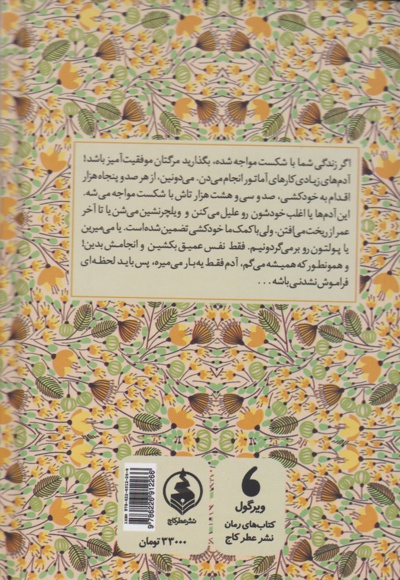 اگر زندگی شما با شکست مواجه شده، بگذارید مرگتان موفقیت‌آمیز باشد!
آدم‌های زیادی کارهای آماتور انجام می‌دن. می‌دونین، از هر صد و پنجاه هزار
اقدام به خودکشی، صد و سی و هشت هزار تاش با شکست مواجه می‌شه.
این آدم‌ها یا اغلب خودشون رو علیل می‌کنن و ویلچرنشین می‌شن یا تا آخر
عمر از ریخت می‌افتن. ولی با کمک ما خودکشی تضمین شده‌است. یا می‌میرین
یا پولتون رو برمی‌گردونیم. فقط نفس عمیق بکشین و انجامش بدین!
و همونطور که همیشه می‌گم، آدم فقط یه‌بار می‌میره، پس باید لحظه‌ای
فراموش نشدنی باشه...
ویرگول
کتاب‌های رمان
نشر عطر کاج
نشر عطر کاج
۳۳۰۰۰ تومان